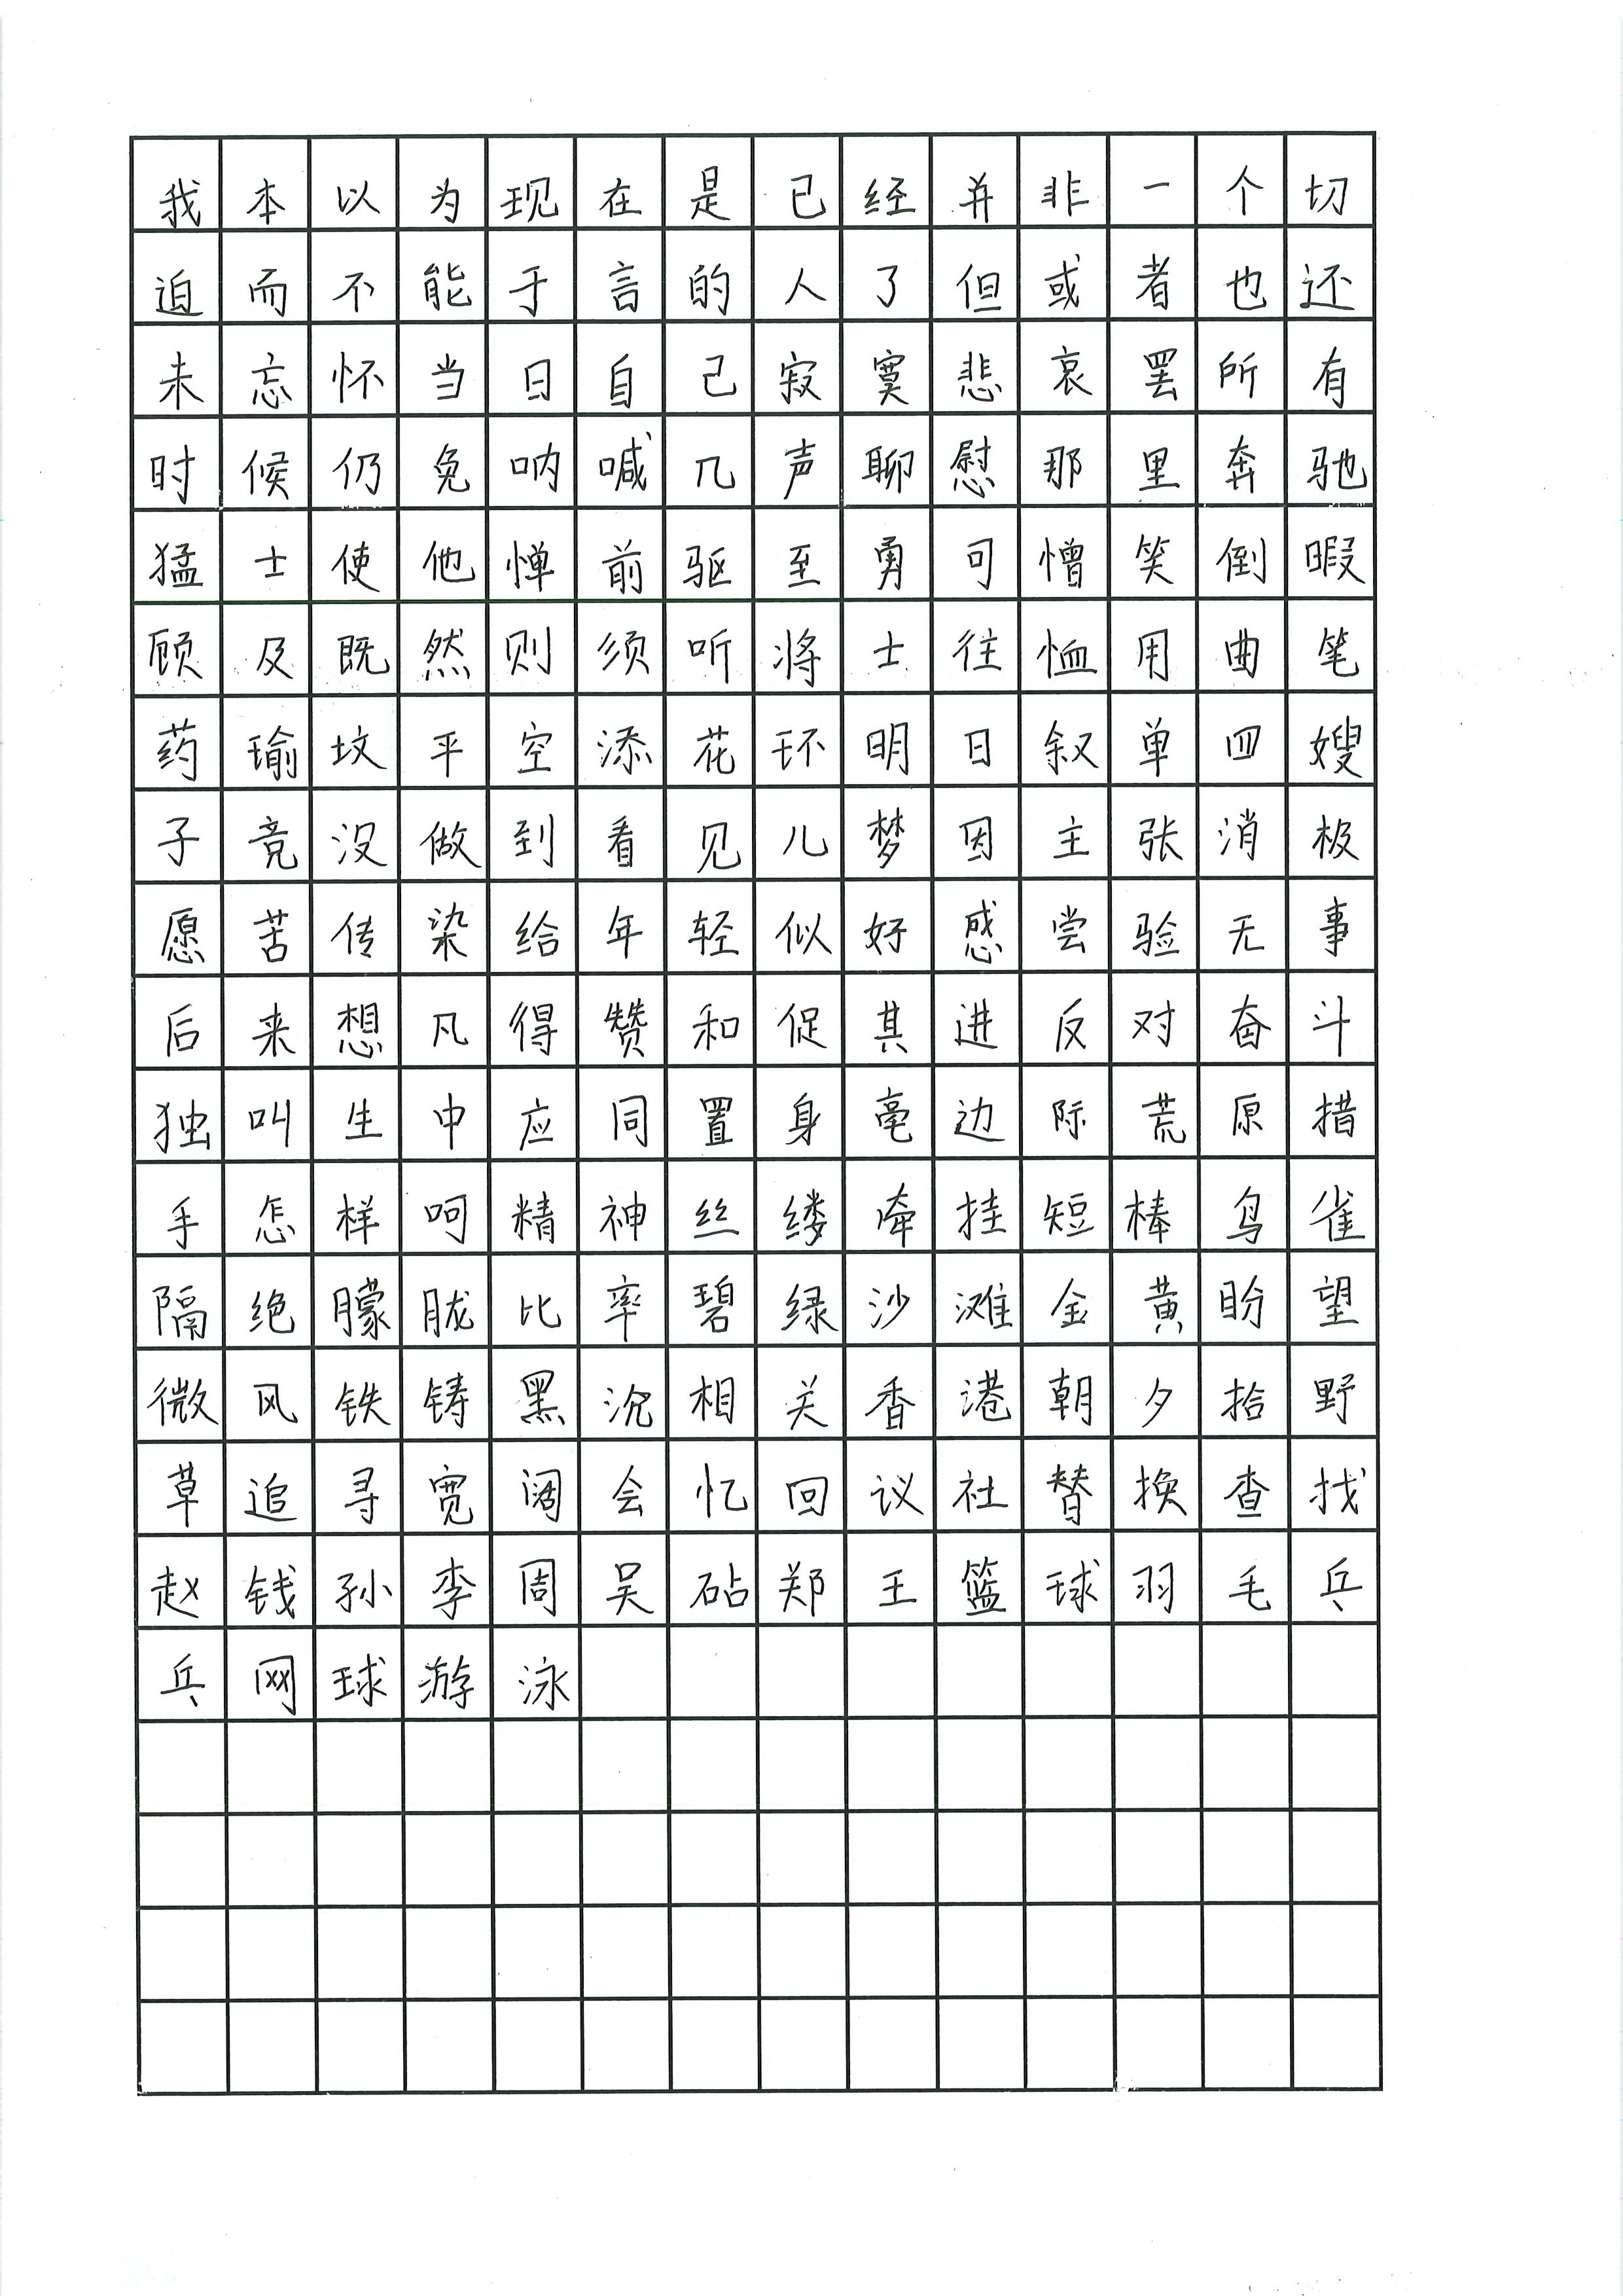 我本以为现在是已经并非一个切
迫而不能于言的人了但或者也还
未忘怀当日自己寂寞悲哀罢所有
时候仍免呐喊几声聊慰那里奔驰
猛士使他惮前驱至勇可憎笑倒暇
顾及既然则须听将士往恤用曲笔
药瑜坟平空添花环明日叙单四嫂
子竞没做到看见儿梦因主张消极
愿苦传染给年轻似好感尝验无事
后来想凡得赞和促其进反对奋斗
独叫生中应同置身毫边际荒原措
手怎样呵精神丝缕牵挂短棒鸟雀
隔绝朦胧比率碧绿沙滩金黄盼望
微风铁铸黑沉相关香港朝夕拾野
草追寻宽阔会忆回议社替换查找
赵钱孙李周吴砧郑王篮球羽毛乒
乓网球游泳